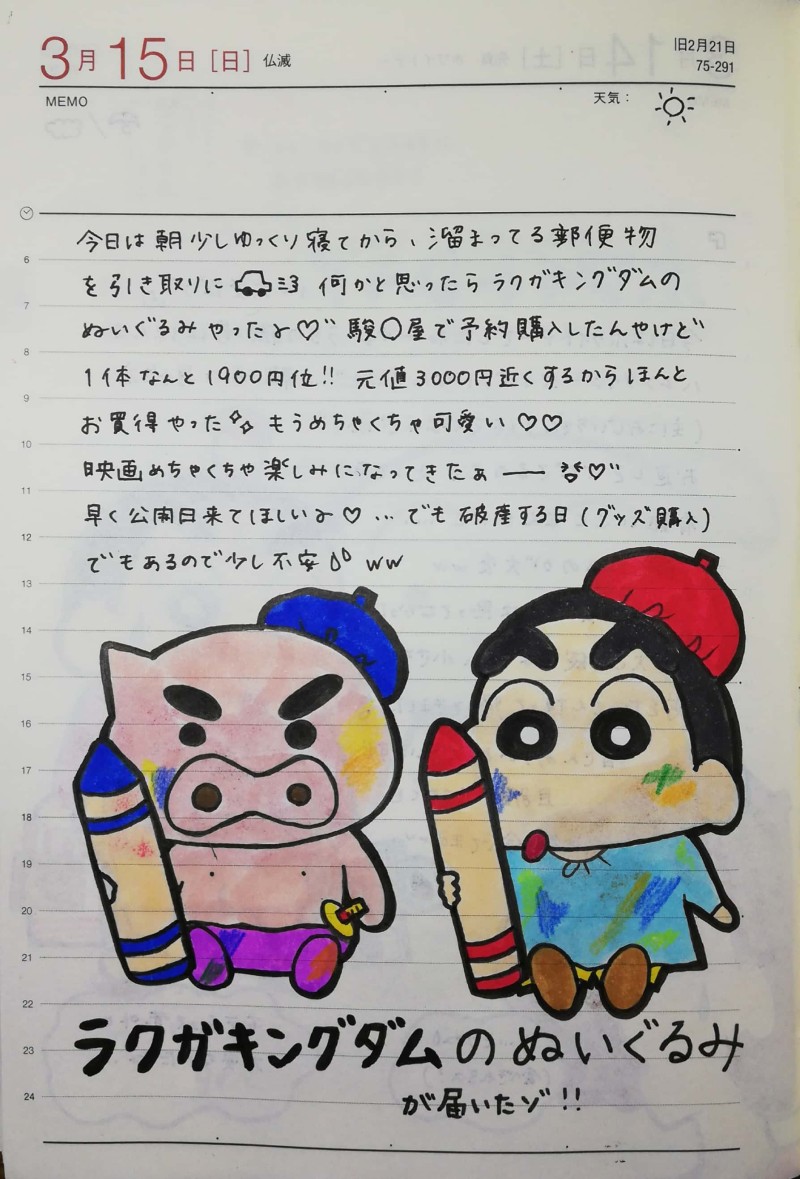 3月15日[日] 仏滅
旧2月21日
75-291
MEMO
天気:
今日は朝少しゆっくり寝てから、溜まってる郵便物
を引き取りに 何かと思ったらラクガキングダムの
ぬいぐるみやったよ♡" 駿〇屋で予約購入したんやけど
1体なんと1900円位!! 元値3000円近くするからほんと
お買得やった もうめちゃくちゃ可愛い♡♡
映画めちゃくちゃ楽しみになってきたぁー ♡"
早く公開日来てほしいよ♡ … でも破産する日(グッズ購入)
でもあるので少し不安 ww
6
7
8
9
10
11
12
13
14
15
16
17
18
19
20
21
22
23
24
ラクガキングダムのぬいぐるみ
が届いたゾ!!